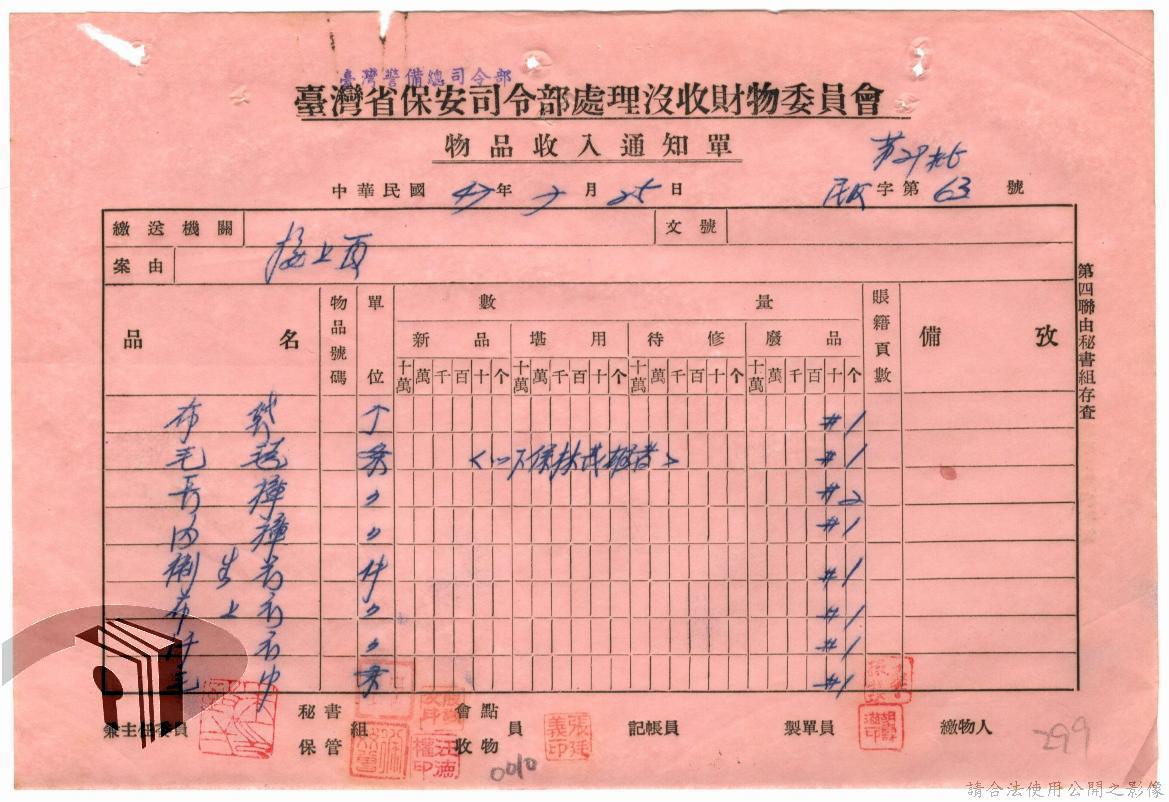 臺灣警備總司令部
臺灣省保安司令部處理沒收財物委員會
物品收入通知單
第29批
中華民國 47年 7月 25日
字第 63 號
繳送機關
文號
案由 接上頁
品名 物品號碼 單位 數量 賬籍頁數 備攷
新品 堪用 待修 廢品
十萬 萬 千 百 十 个 十萬 萬 千 百 十 个 十萬 萬 千 百 十 个 十萬 萬 千 百 十 个
布 个 #1
毛毯 条 #1
長褲 〃 #2
內褲 〃 #1
衛生衣 件 #1
上衣 〃 #1
〃 #1
毛巾 条 #1
第四聯由秘書組存査
兼主任委員
秘書
保管
組
會點
收物
員
張廷義印
記帳員
製單員
繳物人
0010
299
請合法使用公開之影像